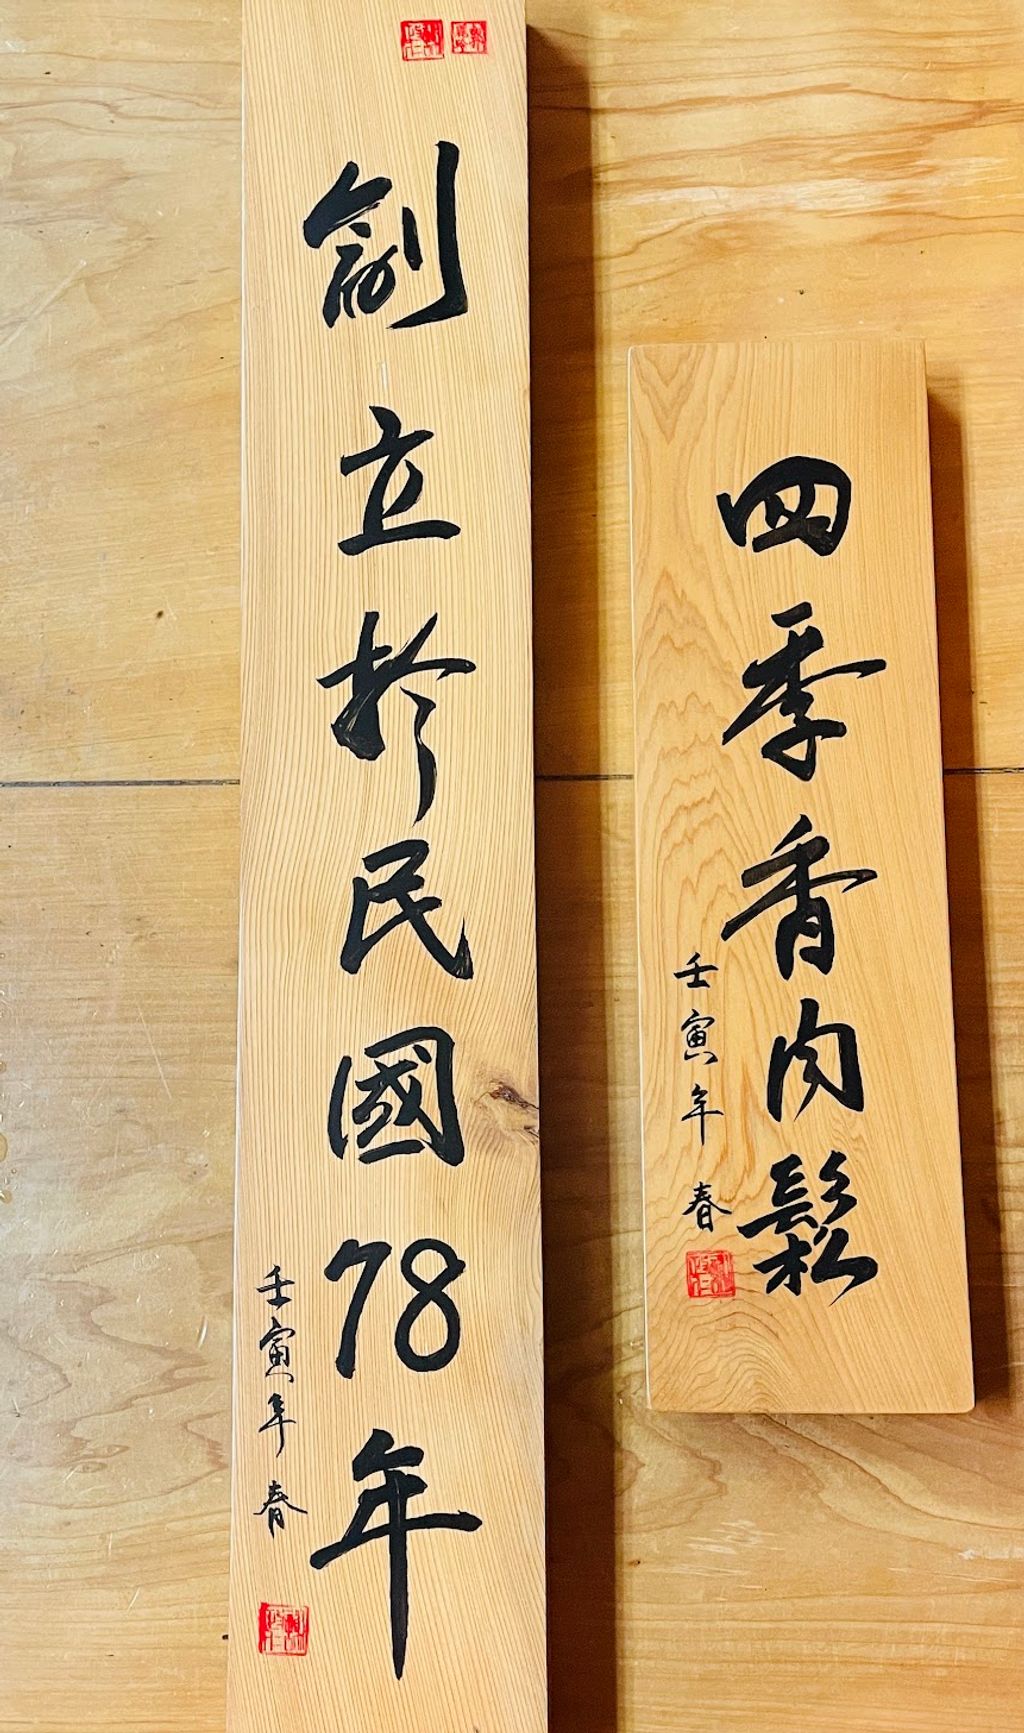 四季香肉鬆
壬寅年春
創立於民國78年
壬寅年春